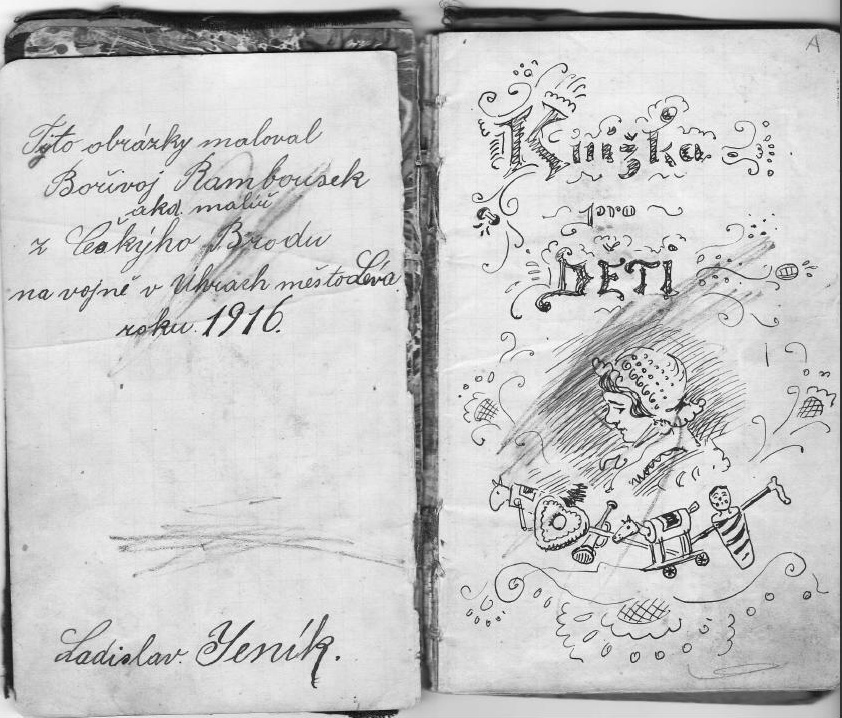 Tyto obrázky maloval
Bořivoj Rambousek
akd. malíř
z Českýho Brodu
na vojně v Uhrach město Léva
roku 1916.
Ladislav Jeník.
A
Knížka
pro
DĚTI